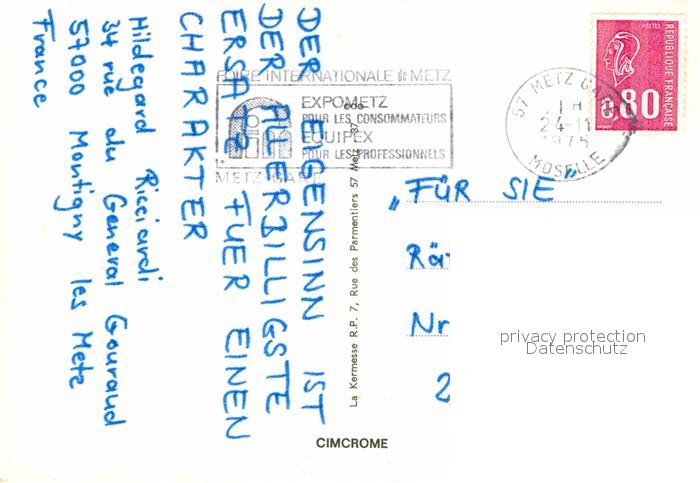 DER EIGENSINN IST
DER ALLERBILLIGSTE
ERSATZ FUER EINEN
CHARAKTER
Hildegard Ricciardi
34 rue du General Gouraud
57000 Montigny les Metz
France
FOIRE INTERNATIONALE de METZ
EXPOMETZ
POUR LES CONSOMMATEURS
EQUIPEX
POUR LES PROFESSIONNELS
METZ-GARE
57 METZ GARE
24-11
1975
MOSELLE
POSTES
REPUBLIQUE FRANÇAISE
0,80
La Kermesse R.P. 7, Rue des Parmentiers 57 Metz 37
„FÜR SIE"
Rä
Nr
2
privacy protection
Datenschutz
CIMCROME